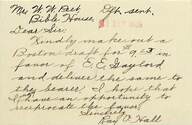 Mr. W. W. Peet
Bible House,
Dear Sir:
Kindly make out a
Boston draft for $9.53 in
favor of E. E. Gaylord
and deliver the same to
the bearer. I hope that
I have an opportunity to
reciprocate the favor.
Sincerely
Ray O. Hall